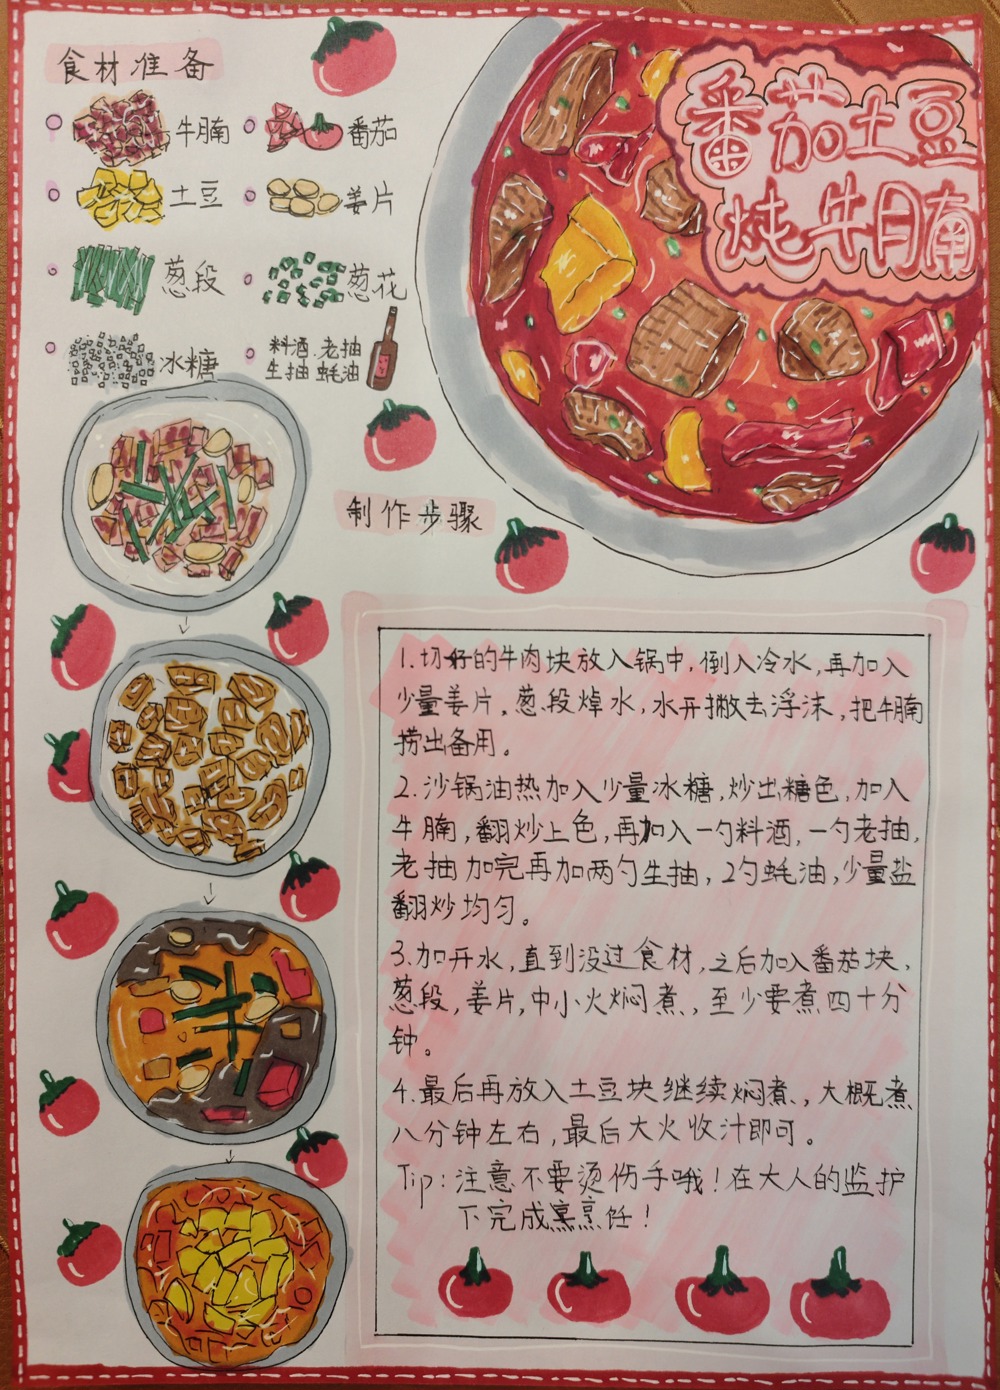 番茄土豆
炖牛腩
食材准备
牛腩
番茄
土豆
姜片
葱段
葱花
冰糖
料酒 老抽
生抽 蚝油
制作步骤
1.切好的牛肉块放入锅中,倒入冷水,再加入
少量姜片,葱段焯水,水开撇去浮沫,把牛腩
捞出备用。
2.沙锅油热加入少量冰糖,炒出糖色,加入
牛腩,翻炒上色,再加入一勺料酒,一勺老抽,
老抽加完再加两勺生抽,2勺蚝油,少量盐
翻炒均匀。
3.加开水,直到没过食材,之后加入番茄块,
葱段,姜片,中小火焖煮,至少要煮四十分
钟。
4.最后再放入土豆块继续焖煮,大概煮
八分钟左右,最后大火收汁即可。
Tip:注意不要烫伤手哦!在大人的监护
下完成烹饪!